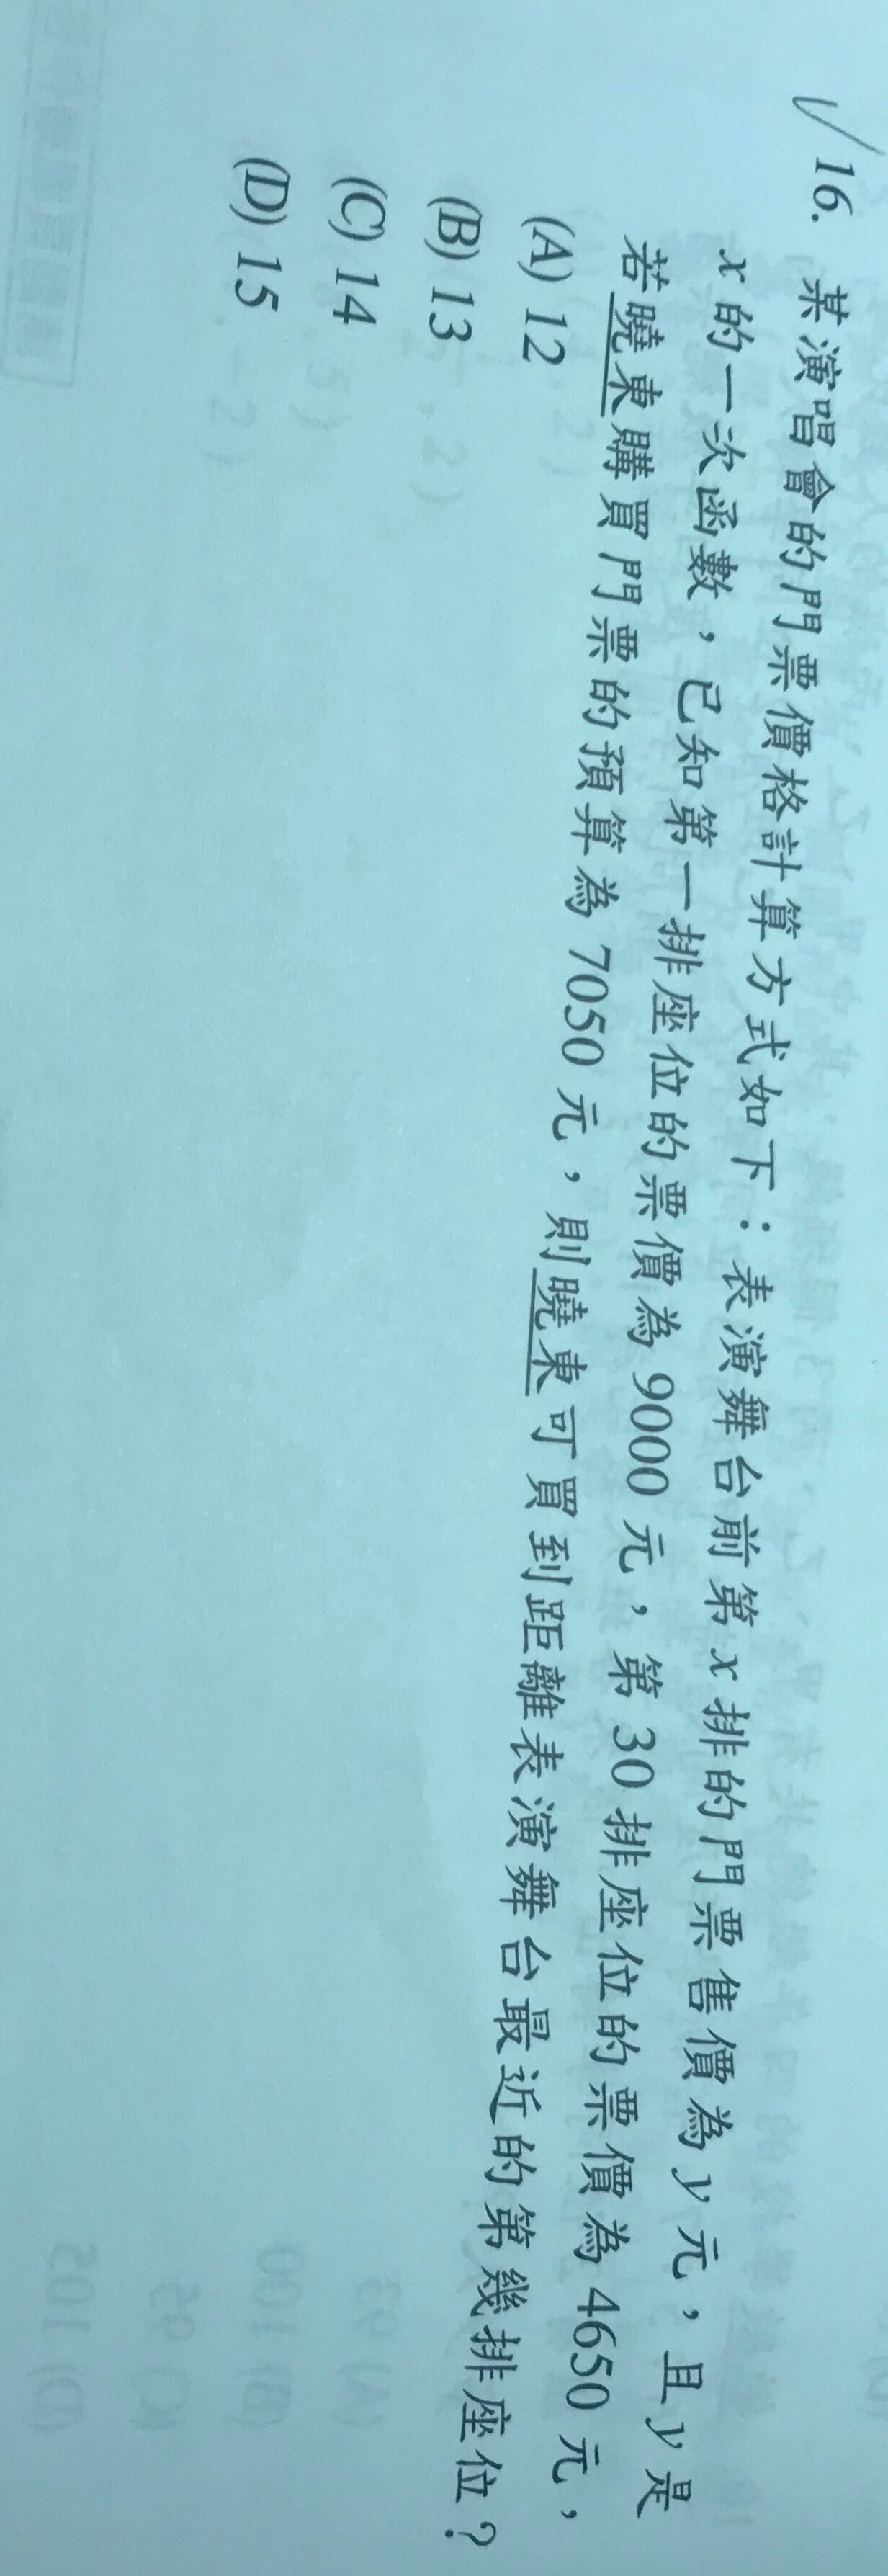 16. 某演唱會的門票價格計算方式如下：表演舞台前第 x 排的門票售價為 y 元，且 y 是
x 的一次函數，已知第一排座位的票價為 9000 元，第 30 排座位的票價為 4650 元，
若曉東購買門票的預算為 7050 元，則曉東可買到距離表演舞台最近的第幾排座位？
(A) 12
(B) 13
(C) 14
(D) 15